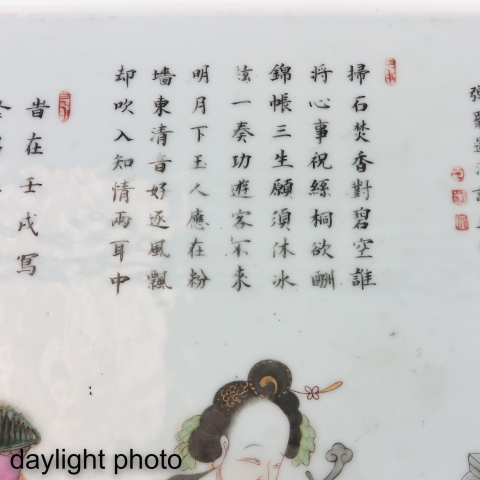 掃石焚香對碧空誰
將心事祝絲桐欲酬
錦帳三生願須休冰
弦一奏功遊客不來
明月下玉人應在粉
墻東清音好逐風飄
却吹入知情兩耳中
昔在壬戌寫
daylight photo